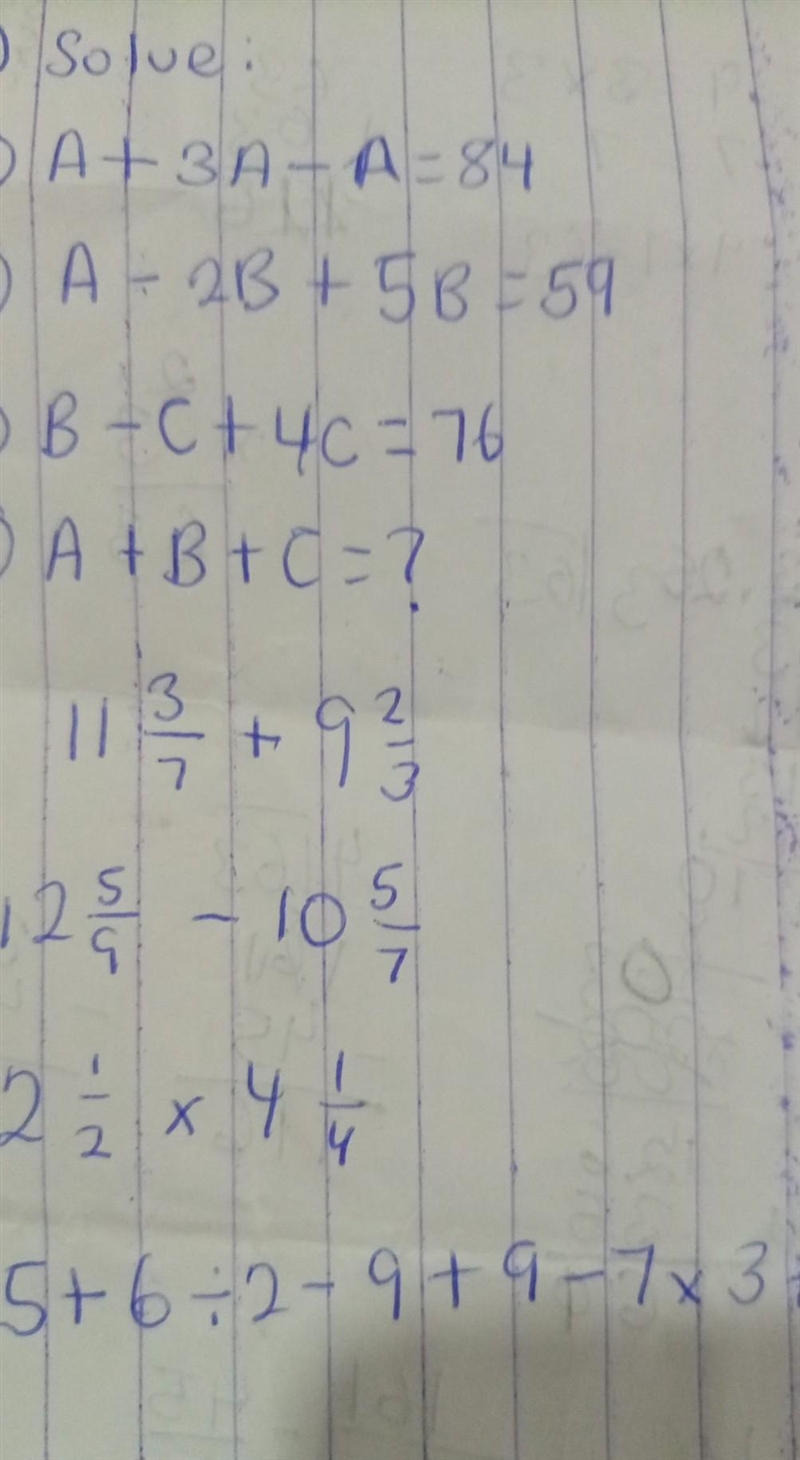 ) Solve:
) A + 3A - A = 84
) A - 2B + 5B = 59
) B - C + 4C = 76
) A + B + C = ?
11 3/7 + 9 2/3
12 5/9 - 10 5/7
2 1/2 × 4 1/4
5 + 6 ÷ 2 - 9 + 9 - 7 × 3